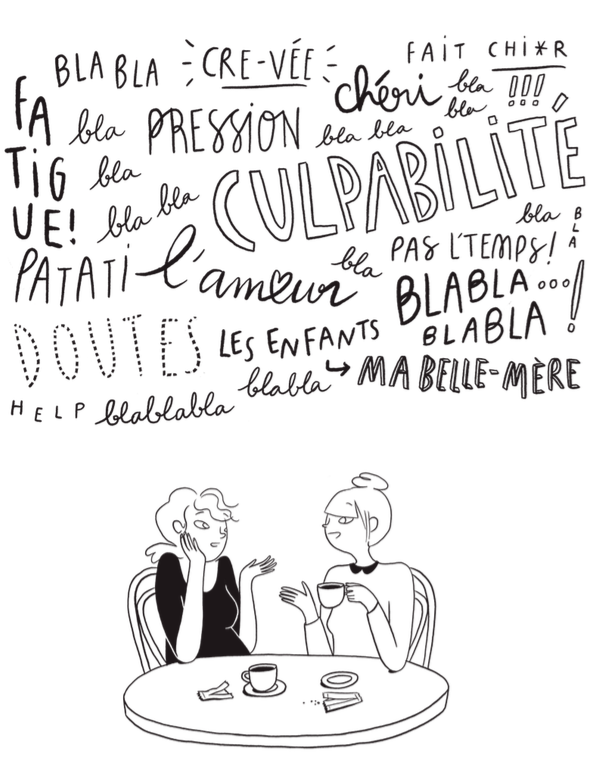 BLA BLA
CRE-VÉE
FAIT CHI*R
FA
TI
GUE!
bla
PRESSION
chéri
bla
bla
!!!
bla bla
bla
CULPABILITÉ
bla bla
bla
BLA
PATATI
l'amour
bla
PAS L'TEMPS!
BLABLA...!
BLABLA
DOUTES
LES ENFANTS
blabla
MA BELLE-MÈRE
HELP
blablabla